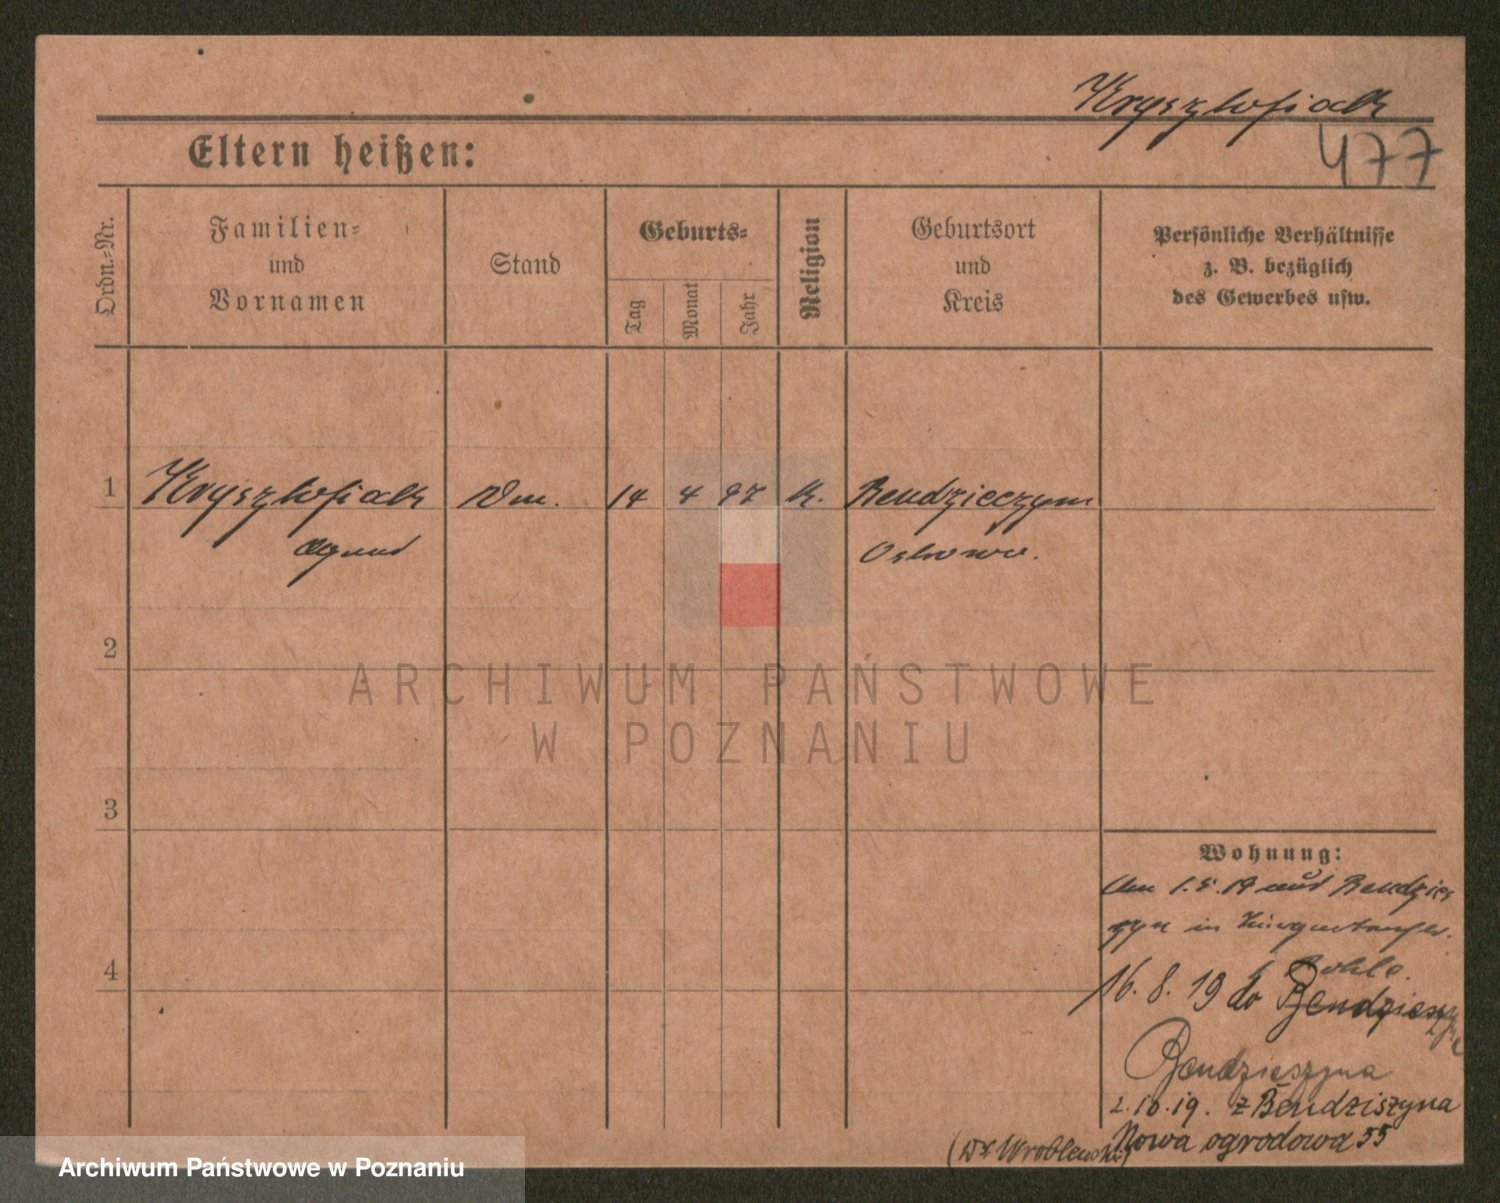 Krysztofiak
477
Eltern heißen:
Ordn.-Nr.
Familien-
und
Vornamen
Stand
Geburts-
Tag
Monat
Jahr
Religion
Geburtsort
und
Kreis
Persönliche Verhältnisse
z. B. bezüglich
des Gewerbes usw.
1 Krysztofiak 14 4 97 k. Bendzieczyn
Ostrowo.
2
ARCHIWUM PAŃSTWOWE
W POZNANIU
3
Wohnung:
Am 1.5.19 aus Bendzies
zyn in
4
b. Bohle.
16. 8. 19 do Bendzieszyna
Bendzieszyna
2.10.19. z Bendziszyna
Nowa ogrodowa 55
(Dr Wroblewski)
Archiwum Państwowe w Poznaniu